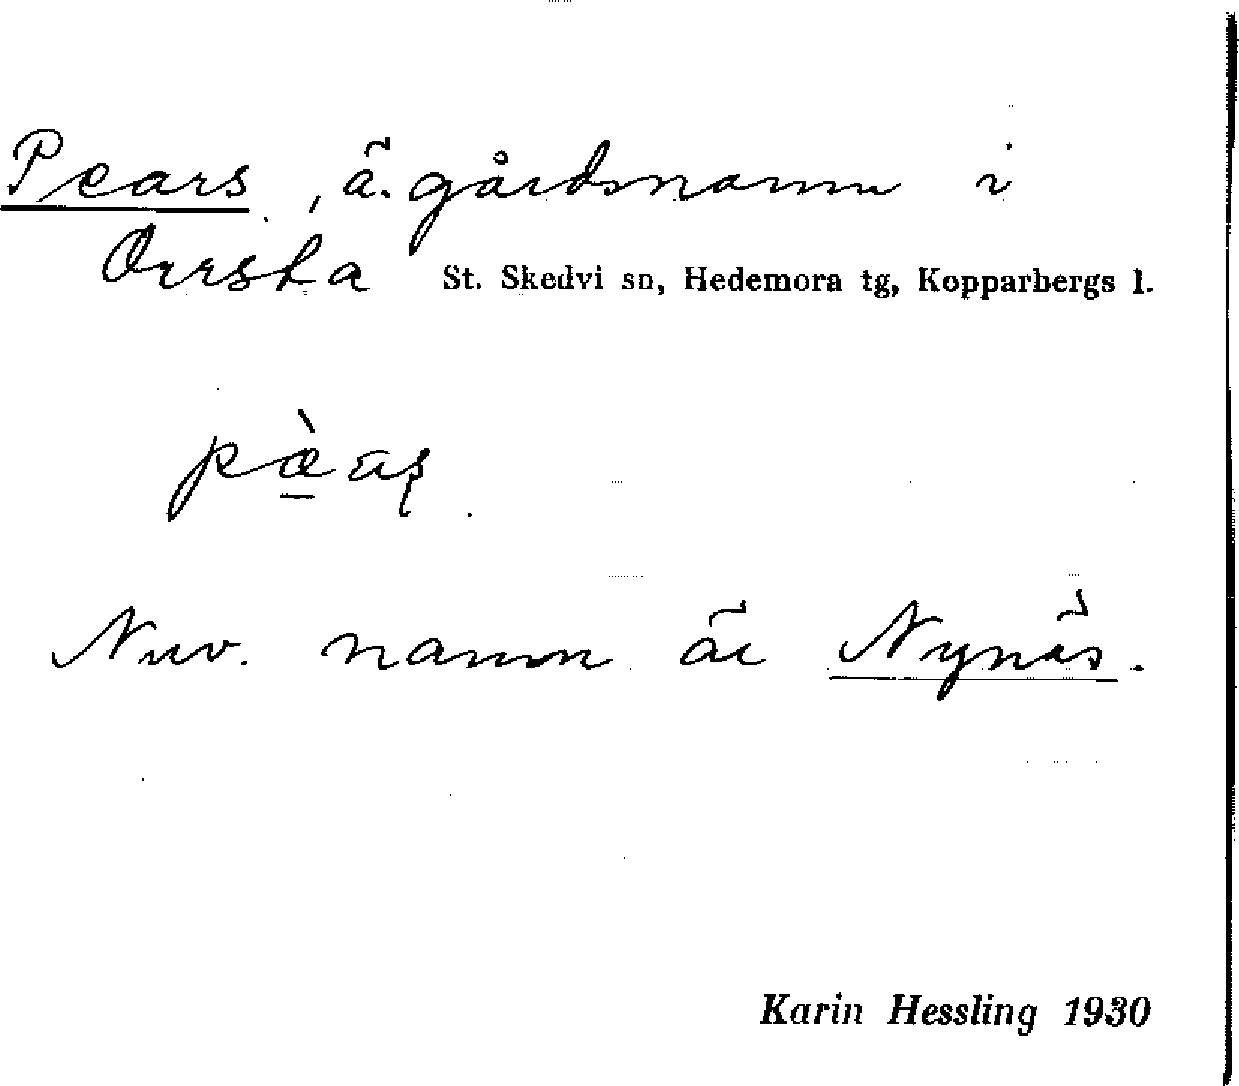 Pears, ä. gårdsnamn i
Orrsta St. Skedvi sn, Hedemora tg, Kopparbergs l.
pæ̀aʂ
Nuv. namn är Nynäs.
Karin Hessling 1930